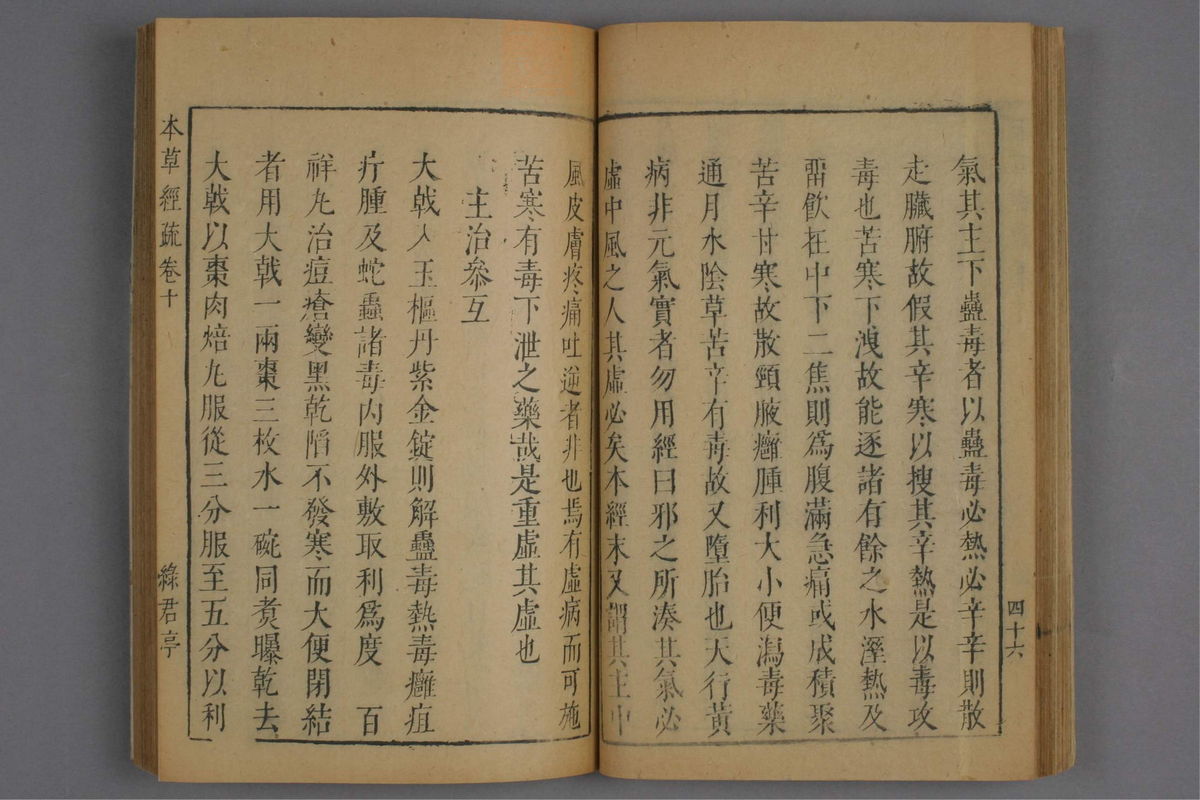 四十六
氣其主下蠱毒者以蠱毒必熱必辛辛則散
走臟腑故假其辛寒以搜其辛熱是以毒攻
毒也苦寒下洩故能逐諸有餘之水溼熱及
畱飲在中下二焦則爲腹滿急痛或成積聚
苦辛甘寒故散頸腋癰腫利大小便瀉毒藥
通月水陰草苦辛有毒故又墮胎也天行黃
病非元氣實者勿用經曰邪之所湊其氣必
虛中風之人其虛必矣本經末又謂其主中
風皮膚疼痛吐逆者非也焉有虛病而可施
苦寒有毒下泄之藥哉是重虛其虛也
主治參互
大戟入玉樞丹紫金錠則解蠱毒熱毒癰疽
疔腫及蛇蟲諸毒內服外敷取利爲度 百
祥丸治痘瘡變黑乾陷不發寒而大便閉結
者用大戟一兩棗三枚水一碗同煮曝乾去
大戟以棗肉焙丸服從三分服至五分以利
本草經疏 卷十 綠君亭